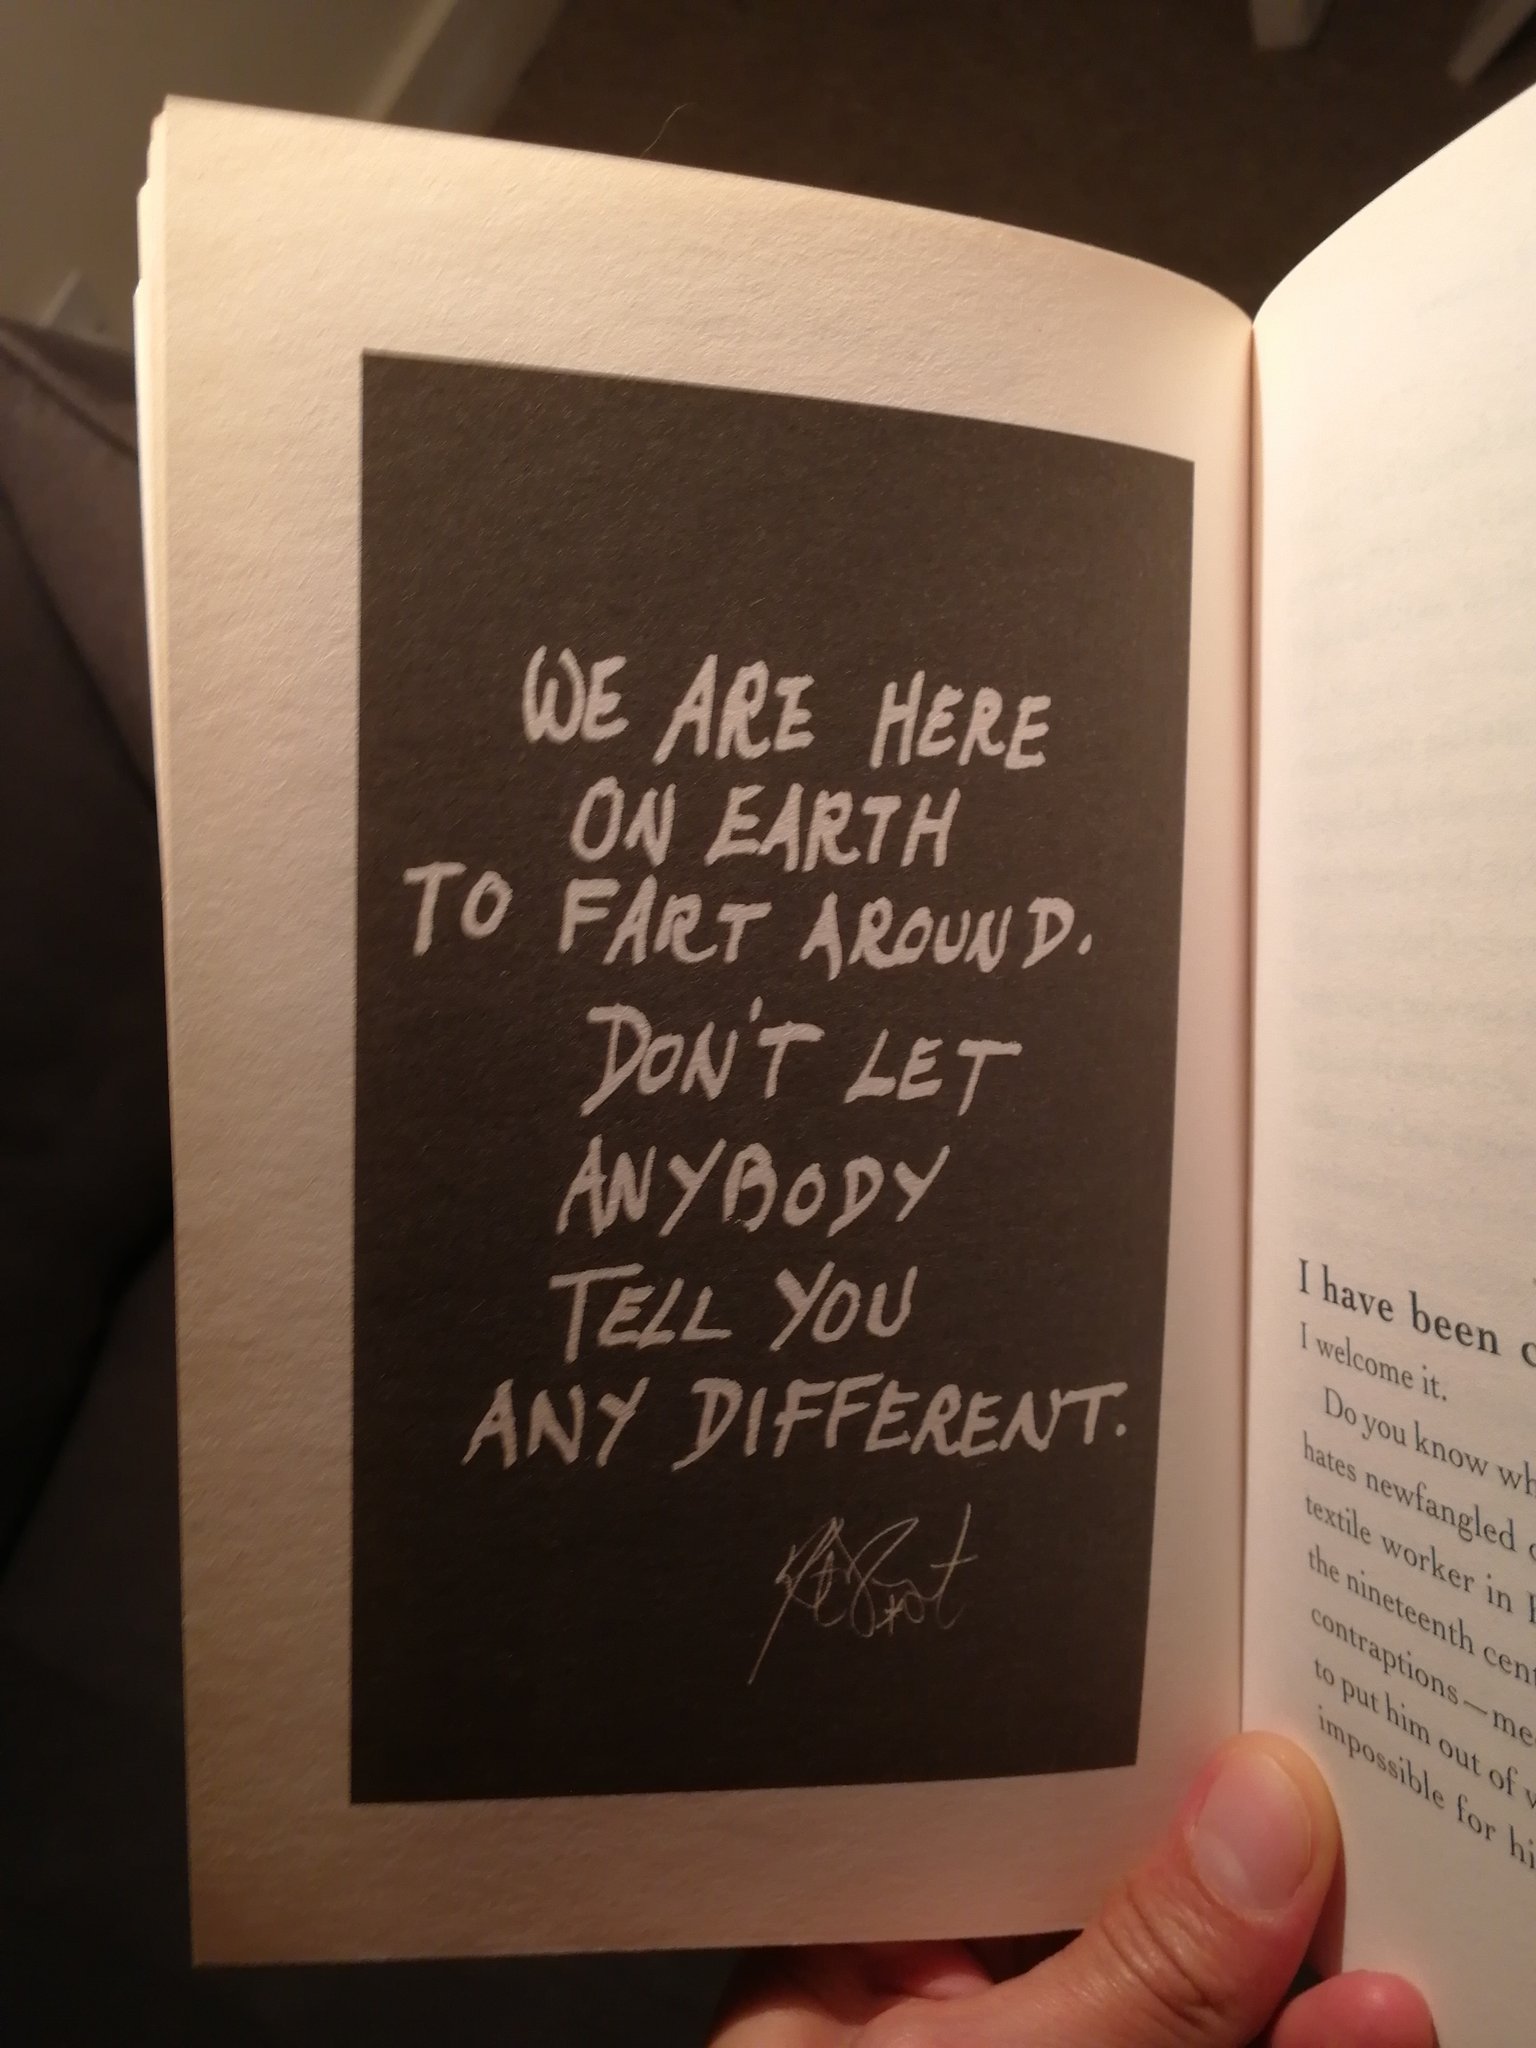 WE ARE HERE
ON EARTH
TO FART AROUND.
DON'T LET
ANYBODY
TELL YOU
ANY DIFFERENT.
I have been
I welcome it.
Do you know
hates newfangled
textile worker in
the nineteenth
contraptions—
to put him out of
impossible for